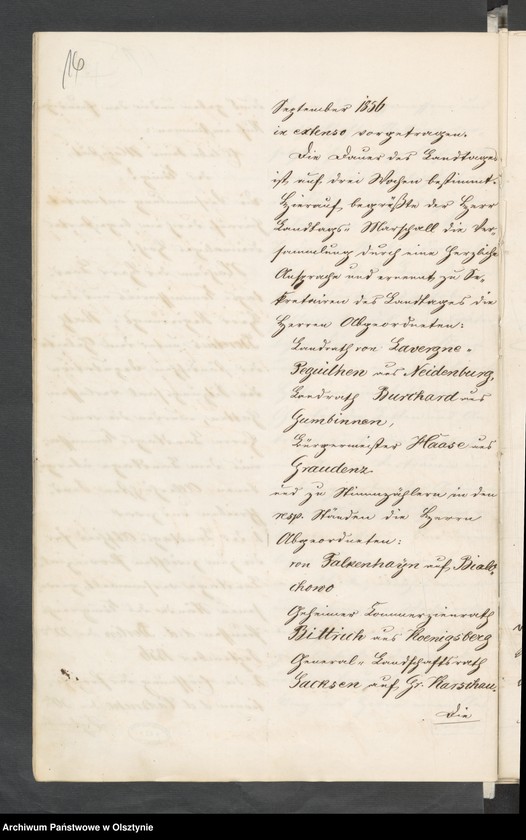 16
September 1856
in extenso vorgetragen.
Die Dauer des Landtages
ist auf drei Wochen bestimmt.
Hierauf begrüßte der Herr
Landtags-Marschall die Ver-
sammlung durch eine herzliche
Ansprache und ernennt zu Se-
kretairen des Landtages die
Herren Abgeordneten:
Landrath von Lavergne-
Peguilhen aus Neidenburg,
Landrath Burchard aus
Gumbinnen,
Bürgermeister Haase aus
Graudenz
und zu Stimmzählern in den
resp. Ständen die Herren
Abgeordneten:
von Falkenhayn auf Bialo-
chowo
Geheimer Commerzienrath
Bittrich aus Koenigsberg
General-Landschaftsrath
Jacksen auf Gr. Karschau.
Die
Archiwum Państwowe w Olsztynie